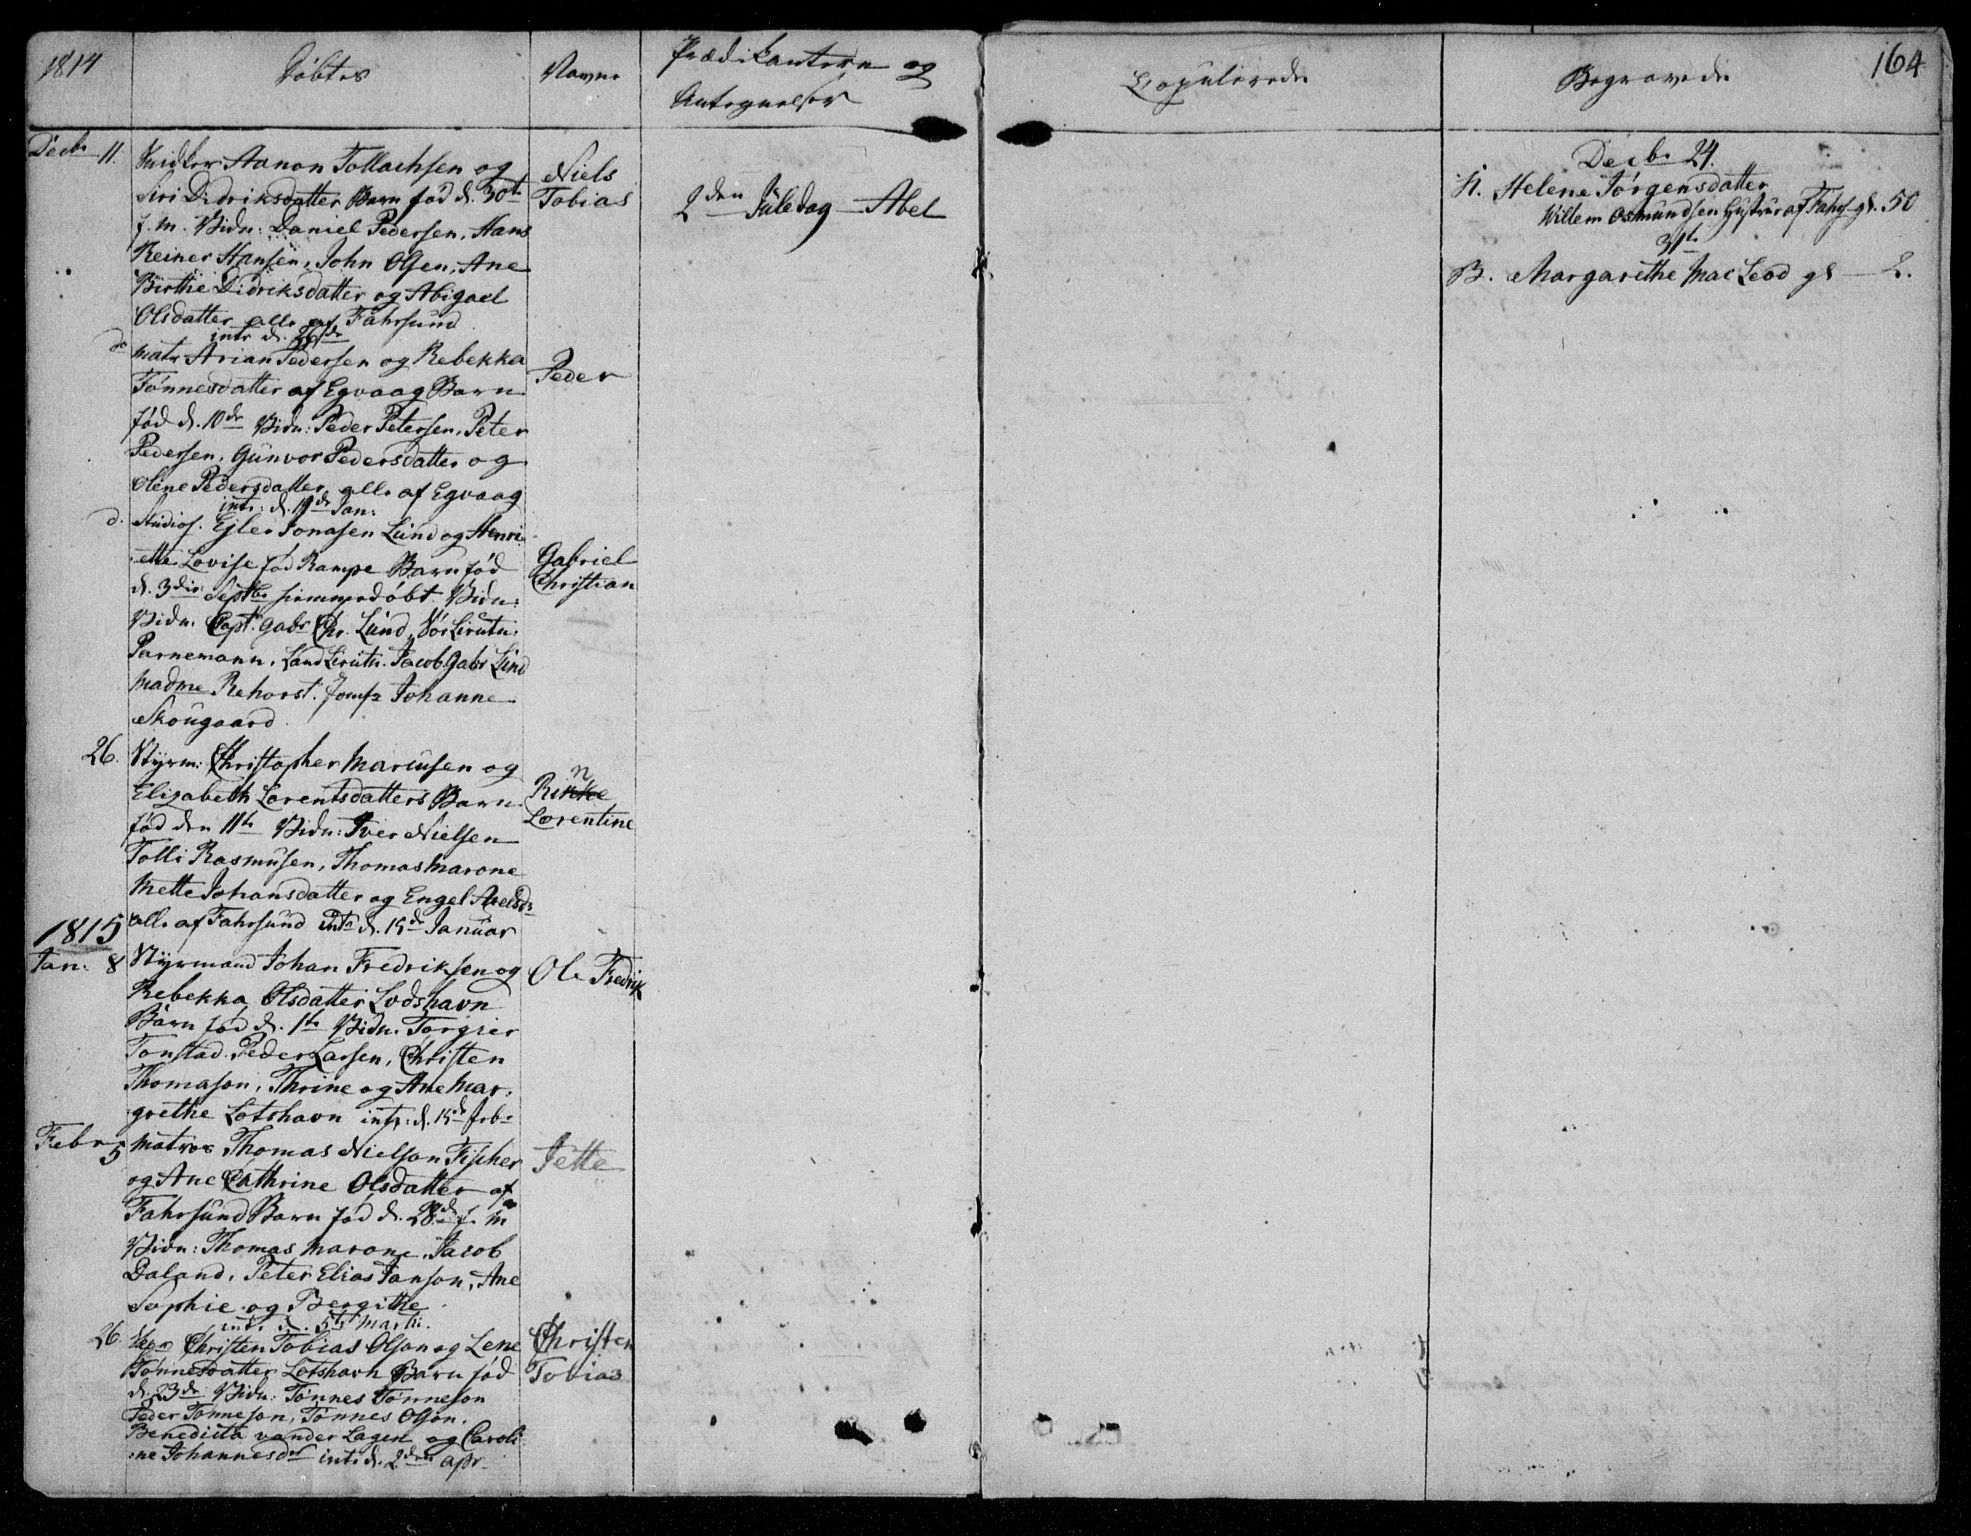 1814
Döbte
Navne
Prædikanterne og
Antegnelser
Copulerede
Begravede
164
Decbr 11.
Snidker Aanon Tollachsen og
Siri Didriksdatter Barn fød d. 30te
f. m. Vidn: Daniel Pedersen, Hans
Reiner Hansen, John Olsen, Ane
Birthe Didriksdatter og Abigael
Olsdatter alle af Fahrsund
intr d. 26de
Niels
Tobias
2den Juledag - Abel
do
Matr Arian Pedersen og Rebekka
Tönnesdatter af Egvaag Barn
fød d. 10de Vidn: Peder Petersen, Peter
Pedersen, Gunvor Pedersdatter og
Olene Pedersdatter alle af Egvaag
intr: d. 19de Jan:
Peder
d.
Studios. Ejler Jonasen Lund og Henri-
ette Lovise fød Rampe Barn fød
d. 3die Septbr hiemmedöbt Vidn:
Vidn: Capt. Gabr Chr. Lund, Söe Lieutn:
Parnemann, Land Lieutn. Jacob Gabr Lund
Madme Rehorst. Jomfr Johanne
Skougaard
Gabriel
Christian
26.
Styrm: Christopher Marcusen og
Elizabeth Lorentsdatters Barn
fød den 11te Vidn: Iver Nielsen
Tolli Rasmusen, Thomas Marone
Mette Johansdatter og Engel Axelsdr
alle af Fahrsund Intr d. 15de Januar
n
Rikke
Lorentine
1815
Jan: 8
Styrmand Johan Fredriksen og
Rebekka Olsdatter Lodshavn
Barn fød d. 1te Vidn. Torgier
Tonstad. Peder Larsen, Christen
Thomason, Thrine og Ane Mar-
grethe Lotshavn intr: d. 15de Febr
Ole Fredrik
Febr 5
Matros Thomas Nielson Fischer
og Ane Cathrine Olsdatter af
Fahrsund Barn fød d. 28de f. m
Vidn: Thomas Marone, Jacob
Daland, Peter Elias Janson, Ane
Sophie og Bergithe
intr. d. 5te Marti.
Jette
26
Christen Tobias Olson og Lene
Tönnesdatter Lotshavn Barn fød
d. 23de Vidn: Tönnes Tönneson
Peder Tönneson, Tönnes Olson,
Benedicta vander Lagen og Caroli-
ne Johannesdr intr d. 2den Apr
Christen
Tobias
Decbr 24.
K. Helene Jörgensdatter
Willem Osmundsen Hustrue af Fahrs. gl. 50
31te
B. Margarethe Mac Leod gl - 2.